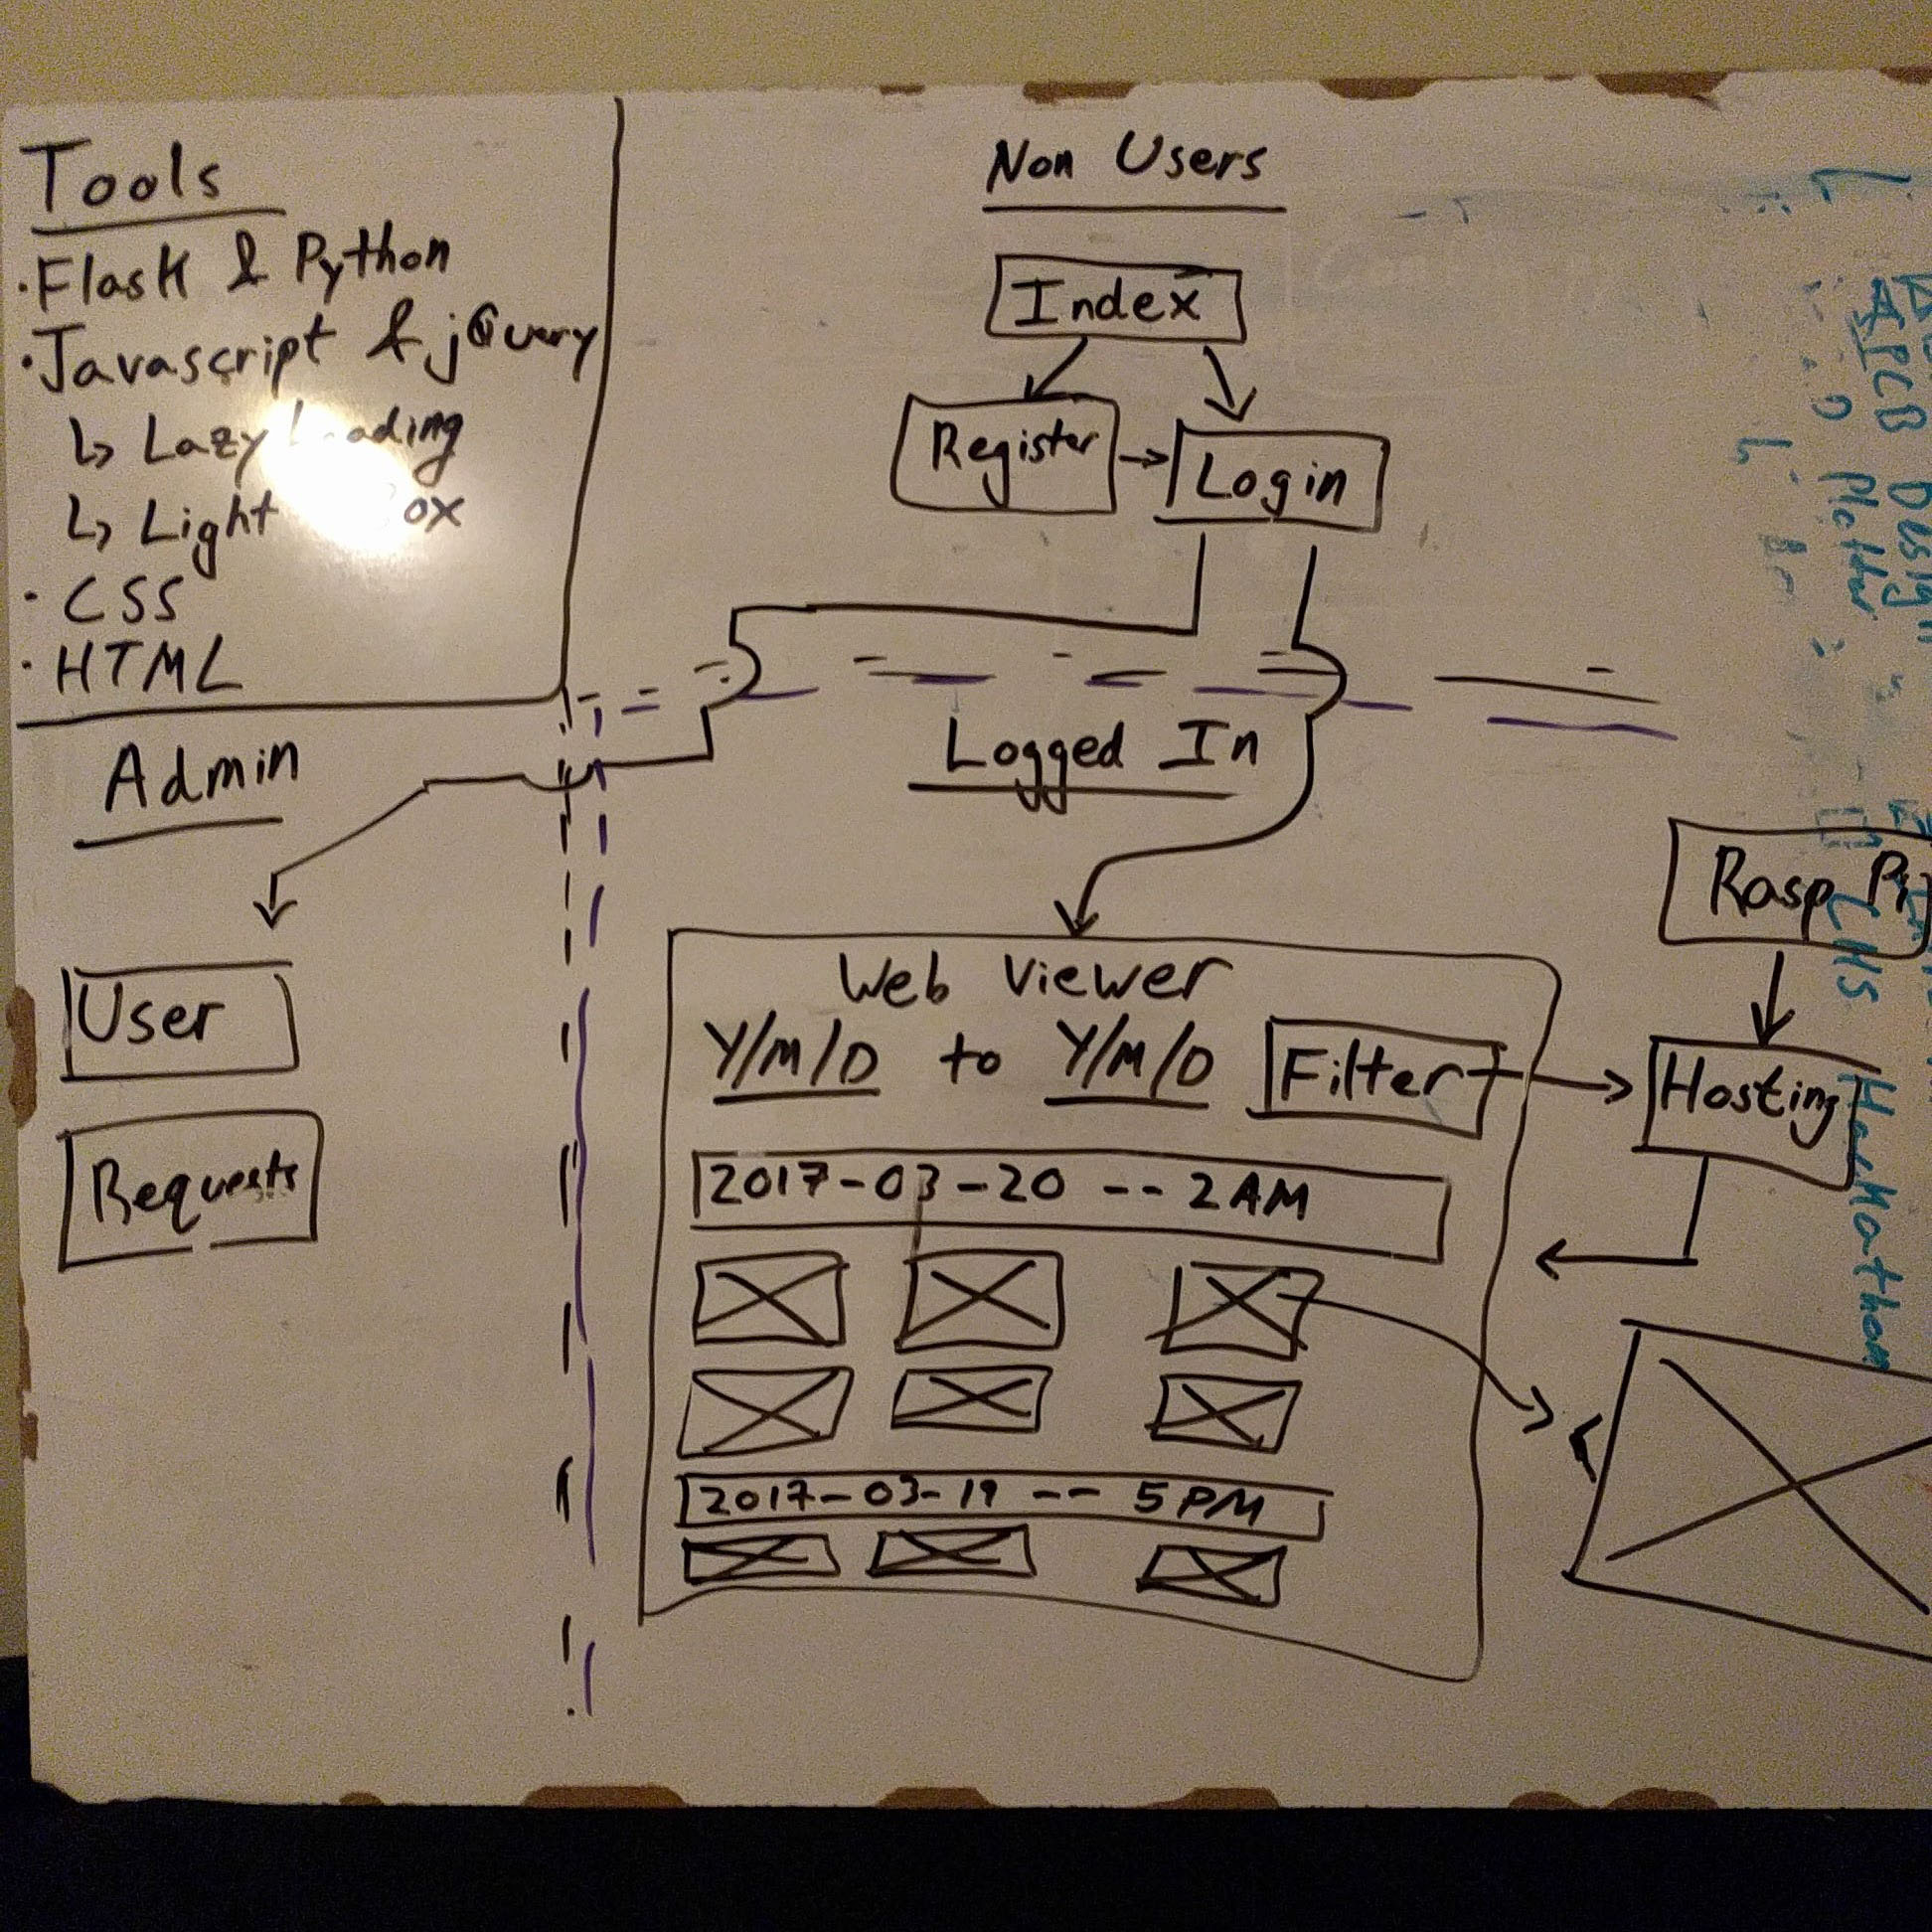 Tools
· Flask & Python
· Javascript & jQuery
↳ Lazy Loading
↳ Light Box
· CSS
· HTML
Non Users
Index
Register
Login
Logged In
Admin
User
Requests
Web Viewer
Y/M/D to Y/M/D Filter
2017-03-20 -- 2AM
2017-03-19 -- 5PM
Rasp Pi
Hosting
PCB Design
Plotter
CMS